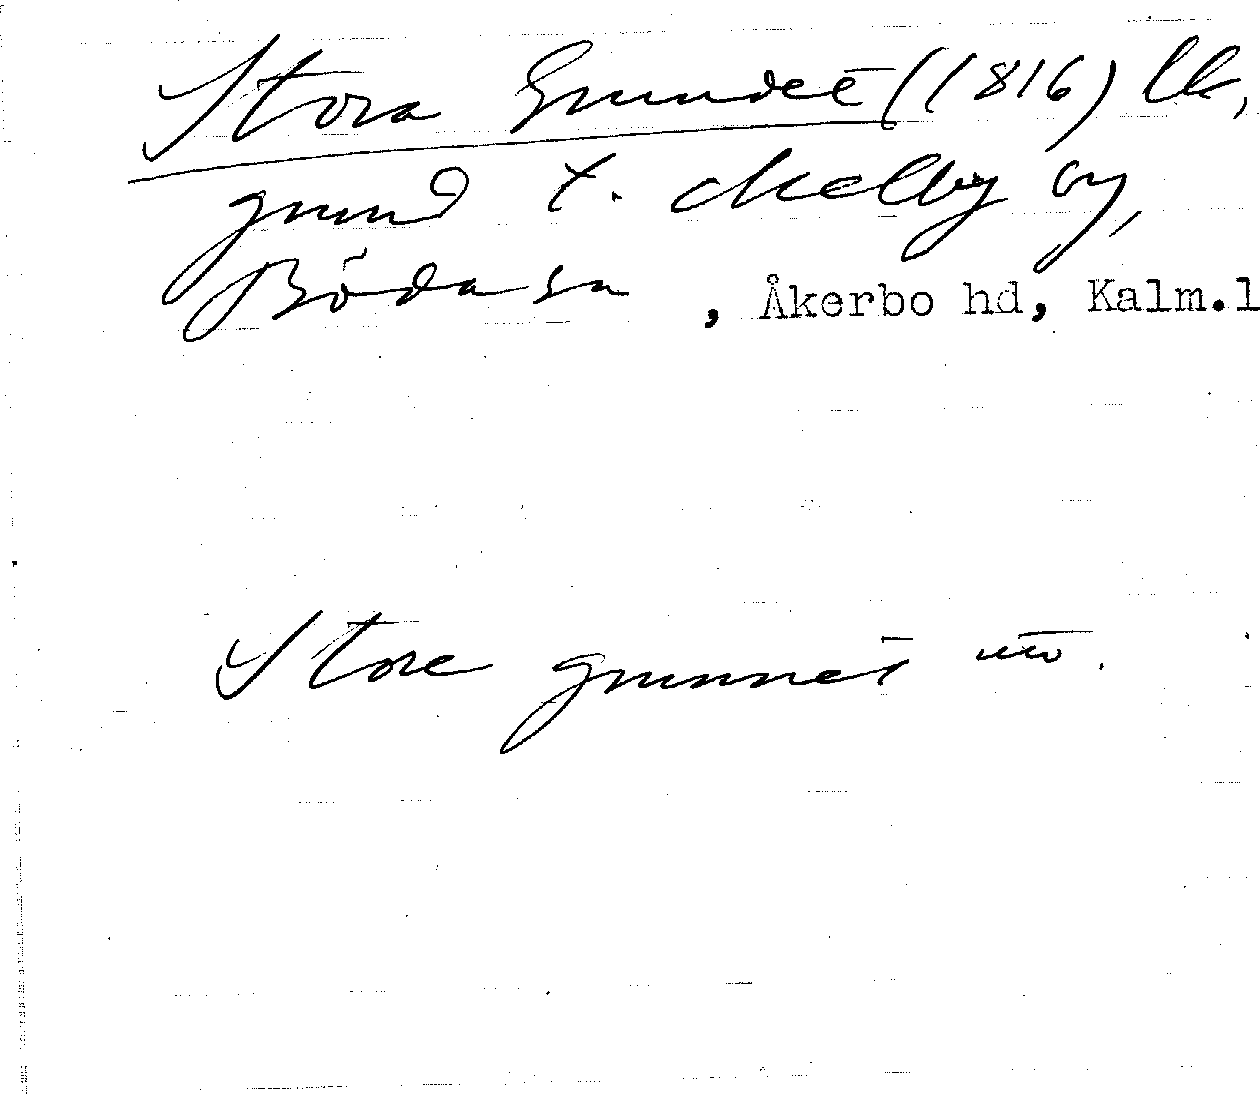 Stora Grundet (1816) lk,
grund t. Melby by,
Böda sn, Åkerbo hd, Kalm.l
Store grunnet utt.